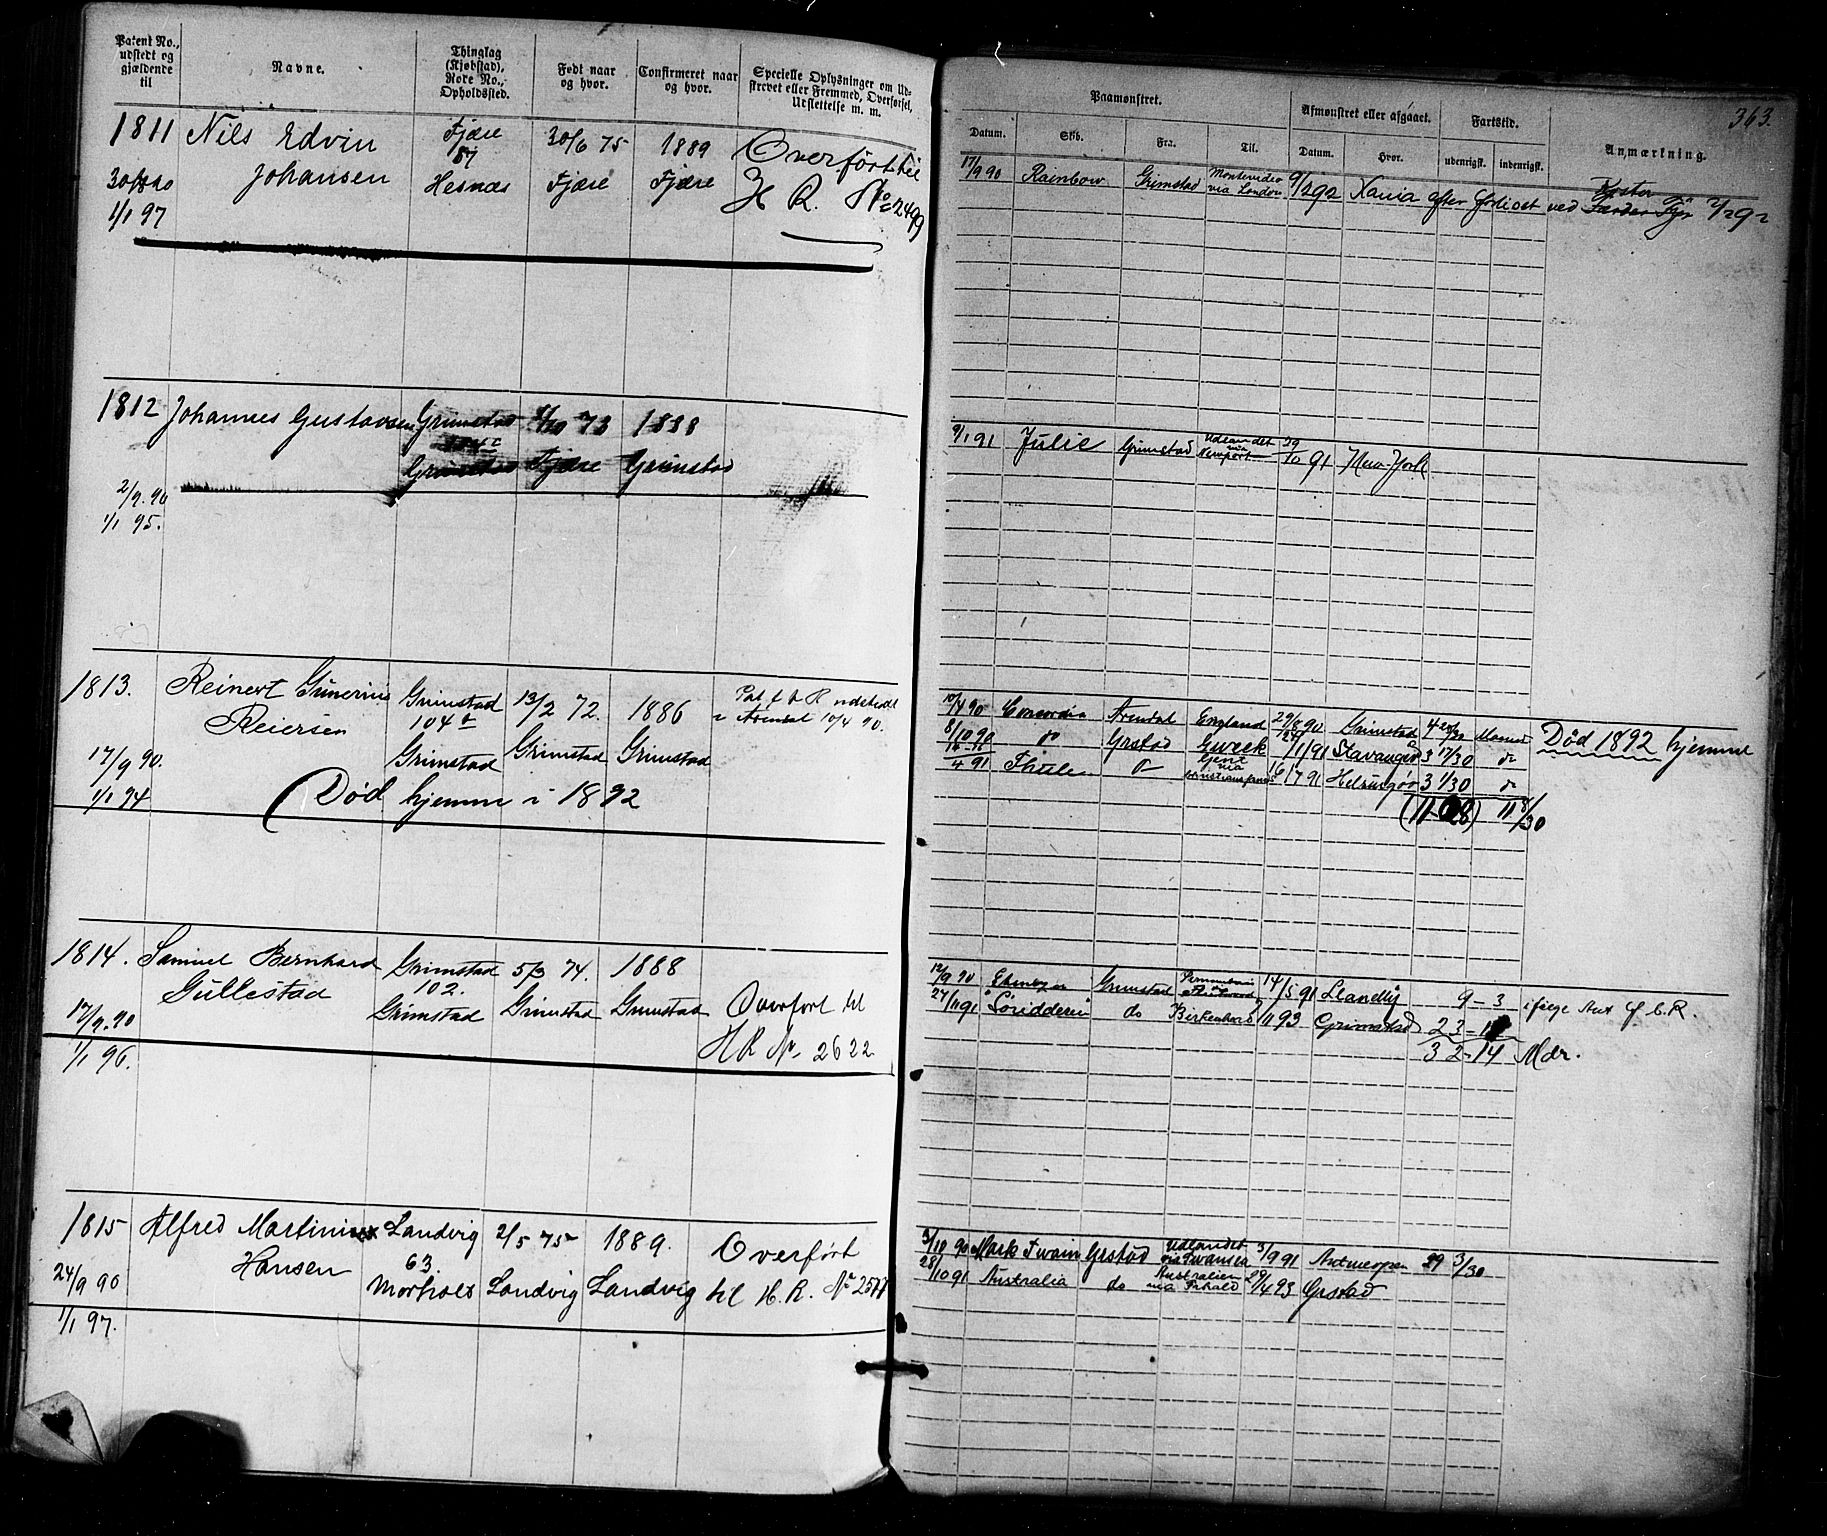 Patent No., udstedt og gjældende til
Navne.
Thinglag (Kjøbstad), Rode No., Opholdssted.
Født naar og hvor.
Confirmeret naar og hvor.
Specielle Oplysninger om Udskrevet eller Fremmed, Overførsel, Udslettelse m. m.
1811 Nils Edvin Fjære 30/6 75 1889 Overført til
57
Johansen Hesnæs Fjære Fjære H R. No 2499
1/1 97
1812 Johannes Gustavsen Grimstad 73 1888
Grimstad Fjære Grimstad
2/9. 90
1/1 95.
1813. Reinert Gunerius Grimstad 13/2 72. 1886 Pat
Reiersen 104 Arendal 10/4 90.
17/9 90. Grimstad Grimstad Grimstad
1/1 94 Død hjemme i 1892
1814. Samuel Bernhard Grimstad 5/3 74. 1888
Gullestad 102.
17/9. 90 Grimstad Grimstad Grimstad Overført til
1/1 96. H R No 2622
1815 Alfred Martinius Landvig 2/5 75 1889. Overført
Hansen 63.
24/9 90 Morholt Landvig Landvig til H. R. No 2577
1/1 97.
363.
Paamønstret.
Afmønstret eller afgaaet.
Fartstid.
Anmærkning.
Datum. Skb. Fra. Til. Datum. Hvor. udenrigsk. indenrigsk.
17/9 90 Rainbow Grimstad Montevideo via London 9/2 92 Xania efter forliset ved Koster 2/2 92
9/1 91 Julie Grimstad Udlandet via Newport 29/10 91 New-York
10/4 90 Concordia Arendal England 29/8 90 Grimstad 4 Død 1892 hjemme
8/10 90 do Grstad 24/1 91 Stavanger 3 17/30 do
4 91 Thule do Gent via 16/7 91 Helsingør 3 1/30 do
11 8/30
12/9 90 Grimstad 14/5 91 Llanelly 9-3 ifølge
27/11 91 do Birkenhead 93 Grimstad 23-
32-14 Mdr.
3/10 90 Mark Twain Grstad Udlandet via Swansea 3/9 91 Antwerpen 3/30
28/10 91 Australia do Australien via 29/4 93 Grstad